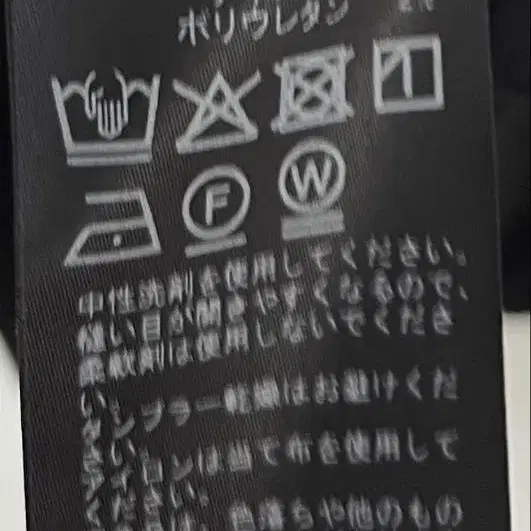 ポリウレタン
F W
中性洗剤を使用してください。
縫い目が開きやすくなるので、
柔軟剤は使用しないでくださ
い。
タンブラー乾燥はお避けくだ
さい。
アイロンは当て布を使用して
ください。
色落ちや他のもの